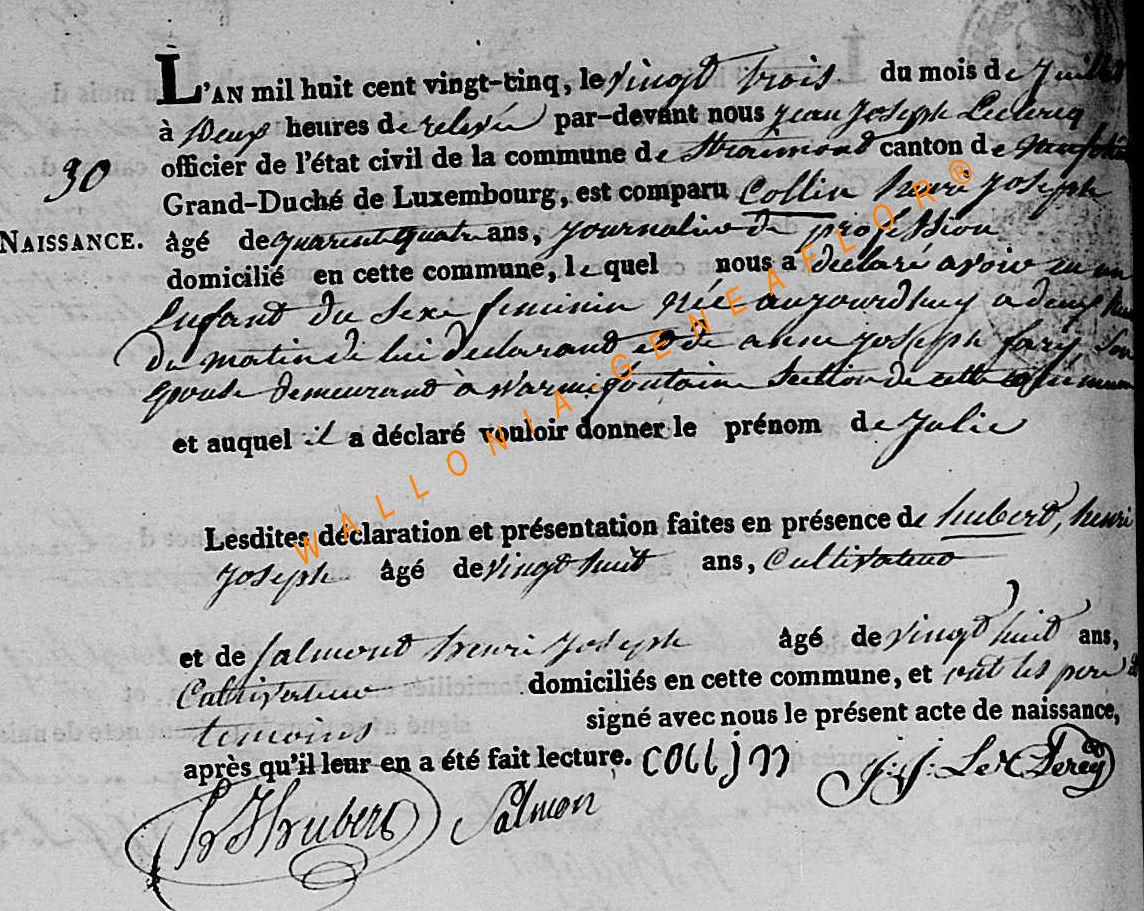 L'AN mil huit cent vingt-cinq, le vingt trois du mois de Juillet
à Deux heures de relevée par-devant nous jean joseph Leclercq
officier de l'état civil de la commune de Straimont canton de
30
Grand-Duché de Luxembourg, est comparu Collin henri joseph
NAISSANCE. âgé de quarent quatre ans, journalier de profession
domicilié en cette commune, le quel nous a declaré avoir eu un
Enfant du sexe feminin née aujourdhuy a deux
du matin de lui declarand et de anne joseph son
Epouse demeurand à Warmifontaine section de cette commune
et auquel il a déclaré vouloir donner le prénom de Julie
Lesdites déclaration et présentation faites en présence de hubert, henri
joseph âgé de vingt huit ans, Cultivateur
et de Salmont henri joseph âgé de vingt huit ans,
Cultivateur domiciliés en cette commune, et ont les
temoins signé avec nous le présent acte de naissance,
après qu'il leur en a été fait lecture. collin J: J: Le Clercq
h J hubert Salmon
WALLONIA-GENEAFLOR®